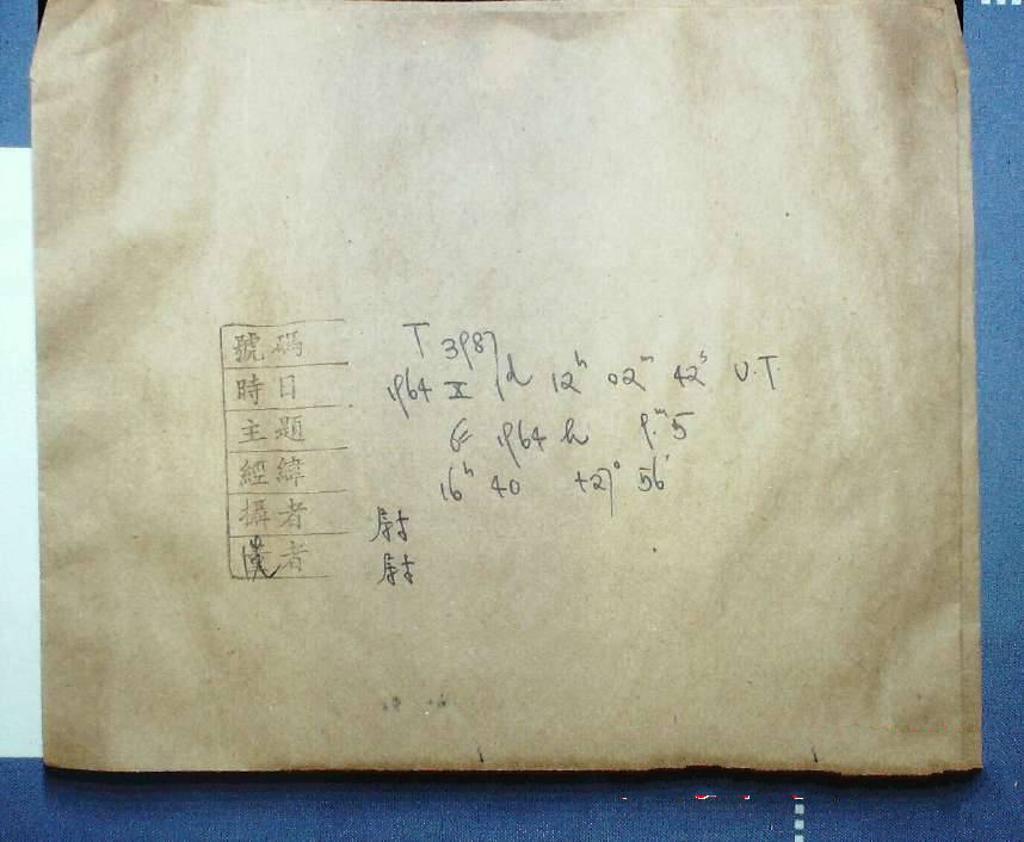 號碼 T 3987
時日 1964 X 1d 12h 02m 42s U.T.
主題 1964 h 9.m5
經緯 16h 40 +27° 56'
攝者 尉
者 尉